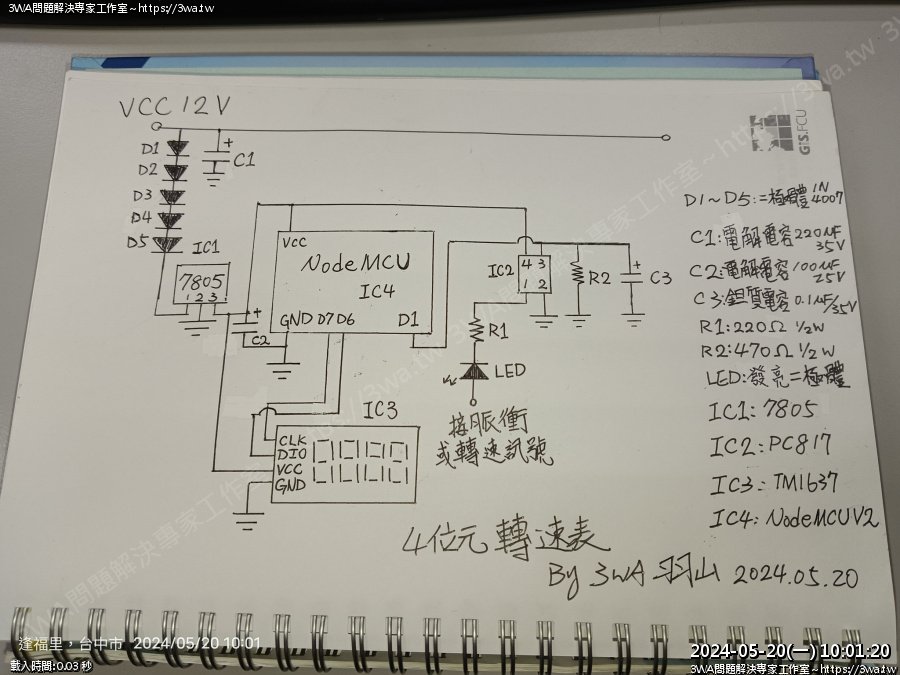 3WA問題解決專家工作室~https://3wa.tw
VCC 12V
D1
D2
D3
D4
D5
C1
IC1
7805
1 2 3
C2
VCC
NodeMCU
IC4
GND D7 D6 D1
IC2
4 3
1 2
R1
R2
C3
LED
接脈衝
或轉速訊號
IC3
CLK
DIO
VCC
GND
GIS.FCU
D1~D5:二極體 1N4007
C1:電解電容 220uF 35V
C2:電解電容 100uF 25V
C3:鉭質電容 0.1uF/35V
R1:220Ω 1/2W
R2:470Ω 1/2W
LED:發亮二極體
IC1:7805
IC2:PC817
IC3:TM1637
IC4:NodeMCUV2
4位元轉速表
By 3WA 羽山 2024.05.20
3WA問題解決專家工作室~https://3wa.tw
逢福里,台中市 2024/05/20 10:01
載入時間:0.03 秒
2024-05-20(一) 10:01:20
3WA問題解決專家工作室~https://3wa.tw